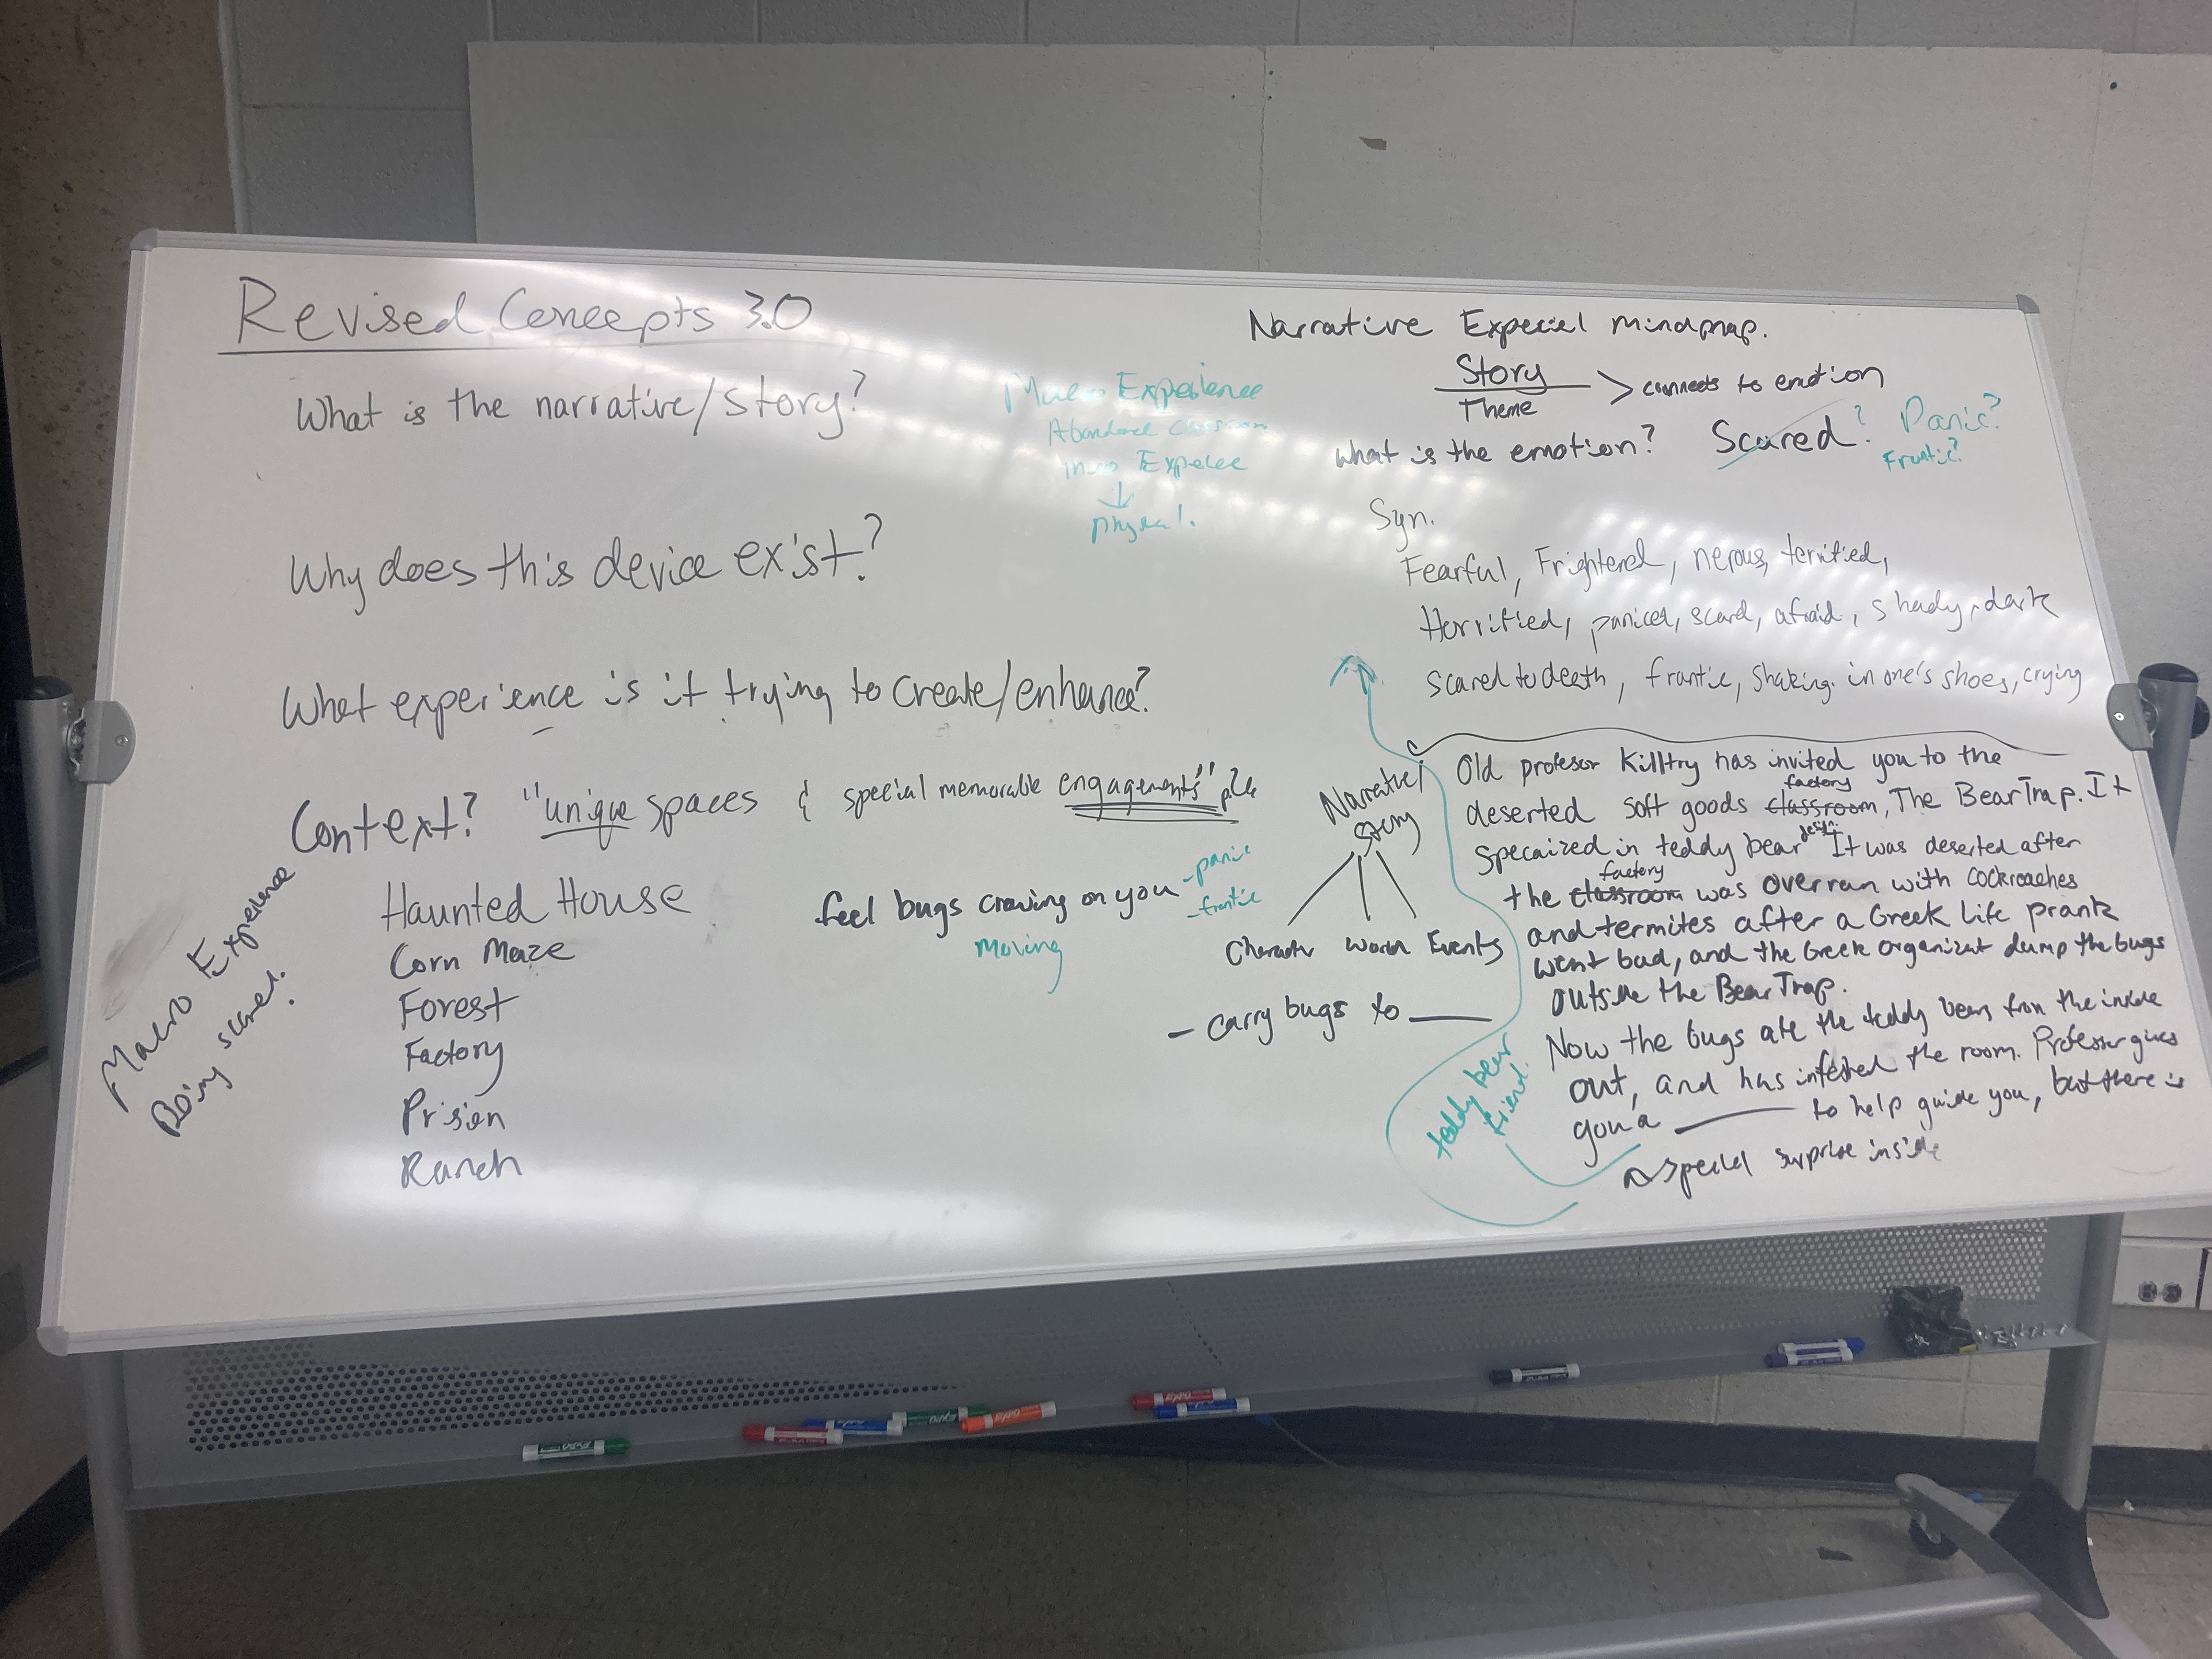 Revised Concepts 3.0
What is the narrative/Story?
Why does this device exist?
What experience is it trying to create/enhance?
Context? "unique spaces & special memorable engagements"
Haunted House
Corn Maze
Forest
Factory
Prison
Ranch
Macro Experience
Being scared.
feel bugs crawing on you
Moving
- panic
- frantic
Experience
Physical.
Narrative Mindmap.
Story
Theme
> connects to emotion
What is the emotion? Scared? Panic?
Frantic?
Syn.
Fearful, Frightened, nerous, terrified,
Horrified, paniced, scard, afraid, shady, dark
scared to death, frantic, Shaking in one's shoes, crying
Narrative/
Story
Character World Events
- carry bugs to ___
Old profesor Killtry has invited you to the
factory
deserted soft goods classroom, The Bear Trap. It
design.
specaized in teddy bear It was deserted after
factory
the classroom was overran with cockroaches
and termites after a Greek Life prank
went bad, and the Greek organizat dump the bugs
outside the Bear Trap.
Now the bugs ate the teddy bears from the inside
out, and has infested the room. Professor gives
you a ___ to help guide you, but there is
a special surprise inside
teddy bear
friend.